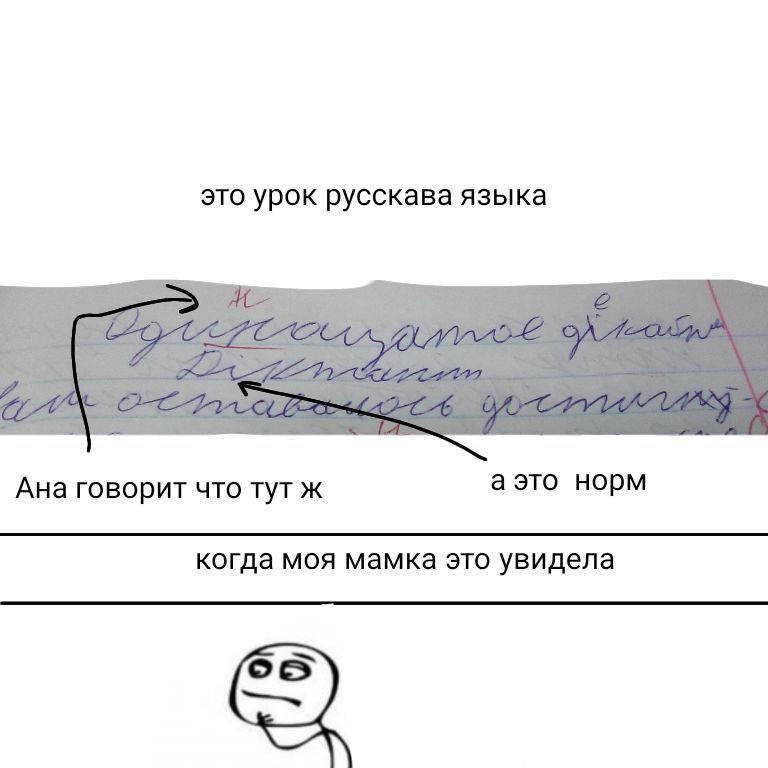 это урок русскава языка
ж е
Одинацатое дікабря
Діктант
Вам оставалось достигну-
Ана говорит что тут ж
а это норм
когда моя мамка это увидела